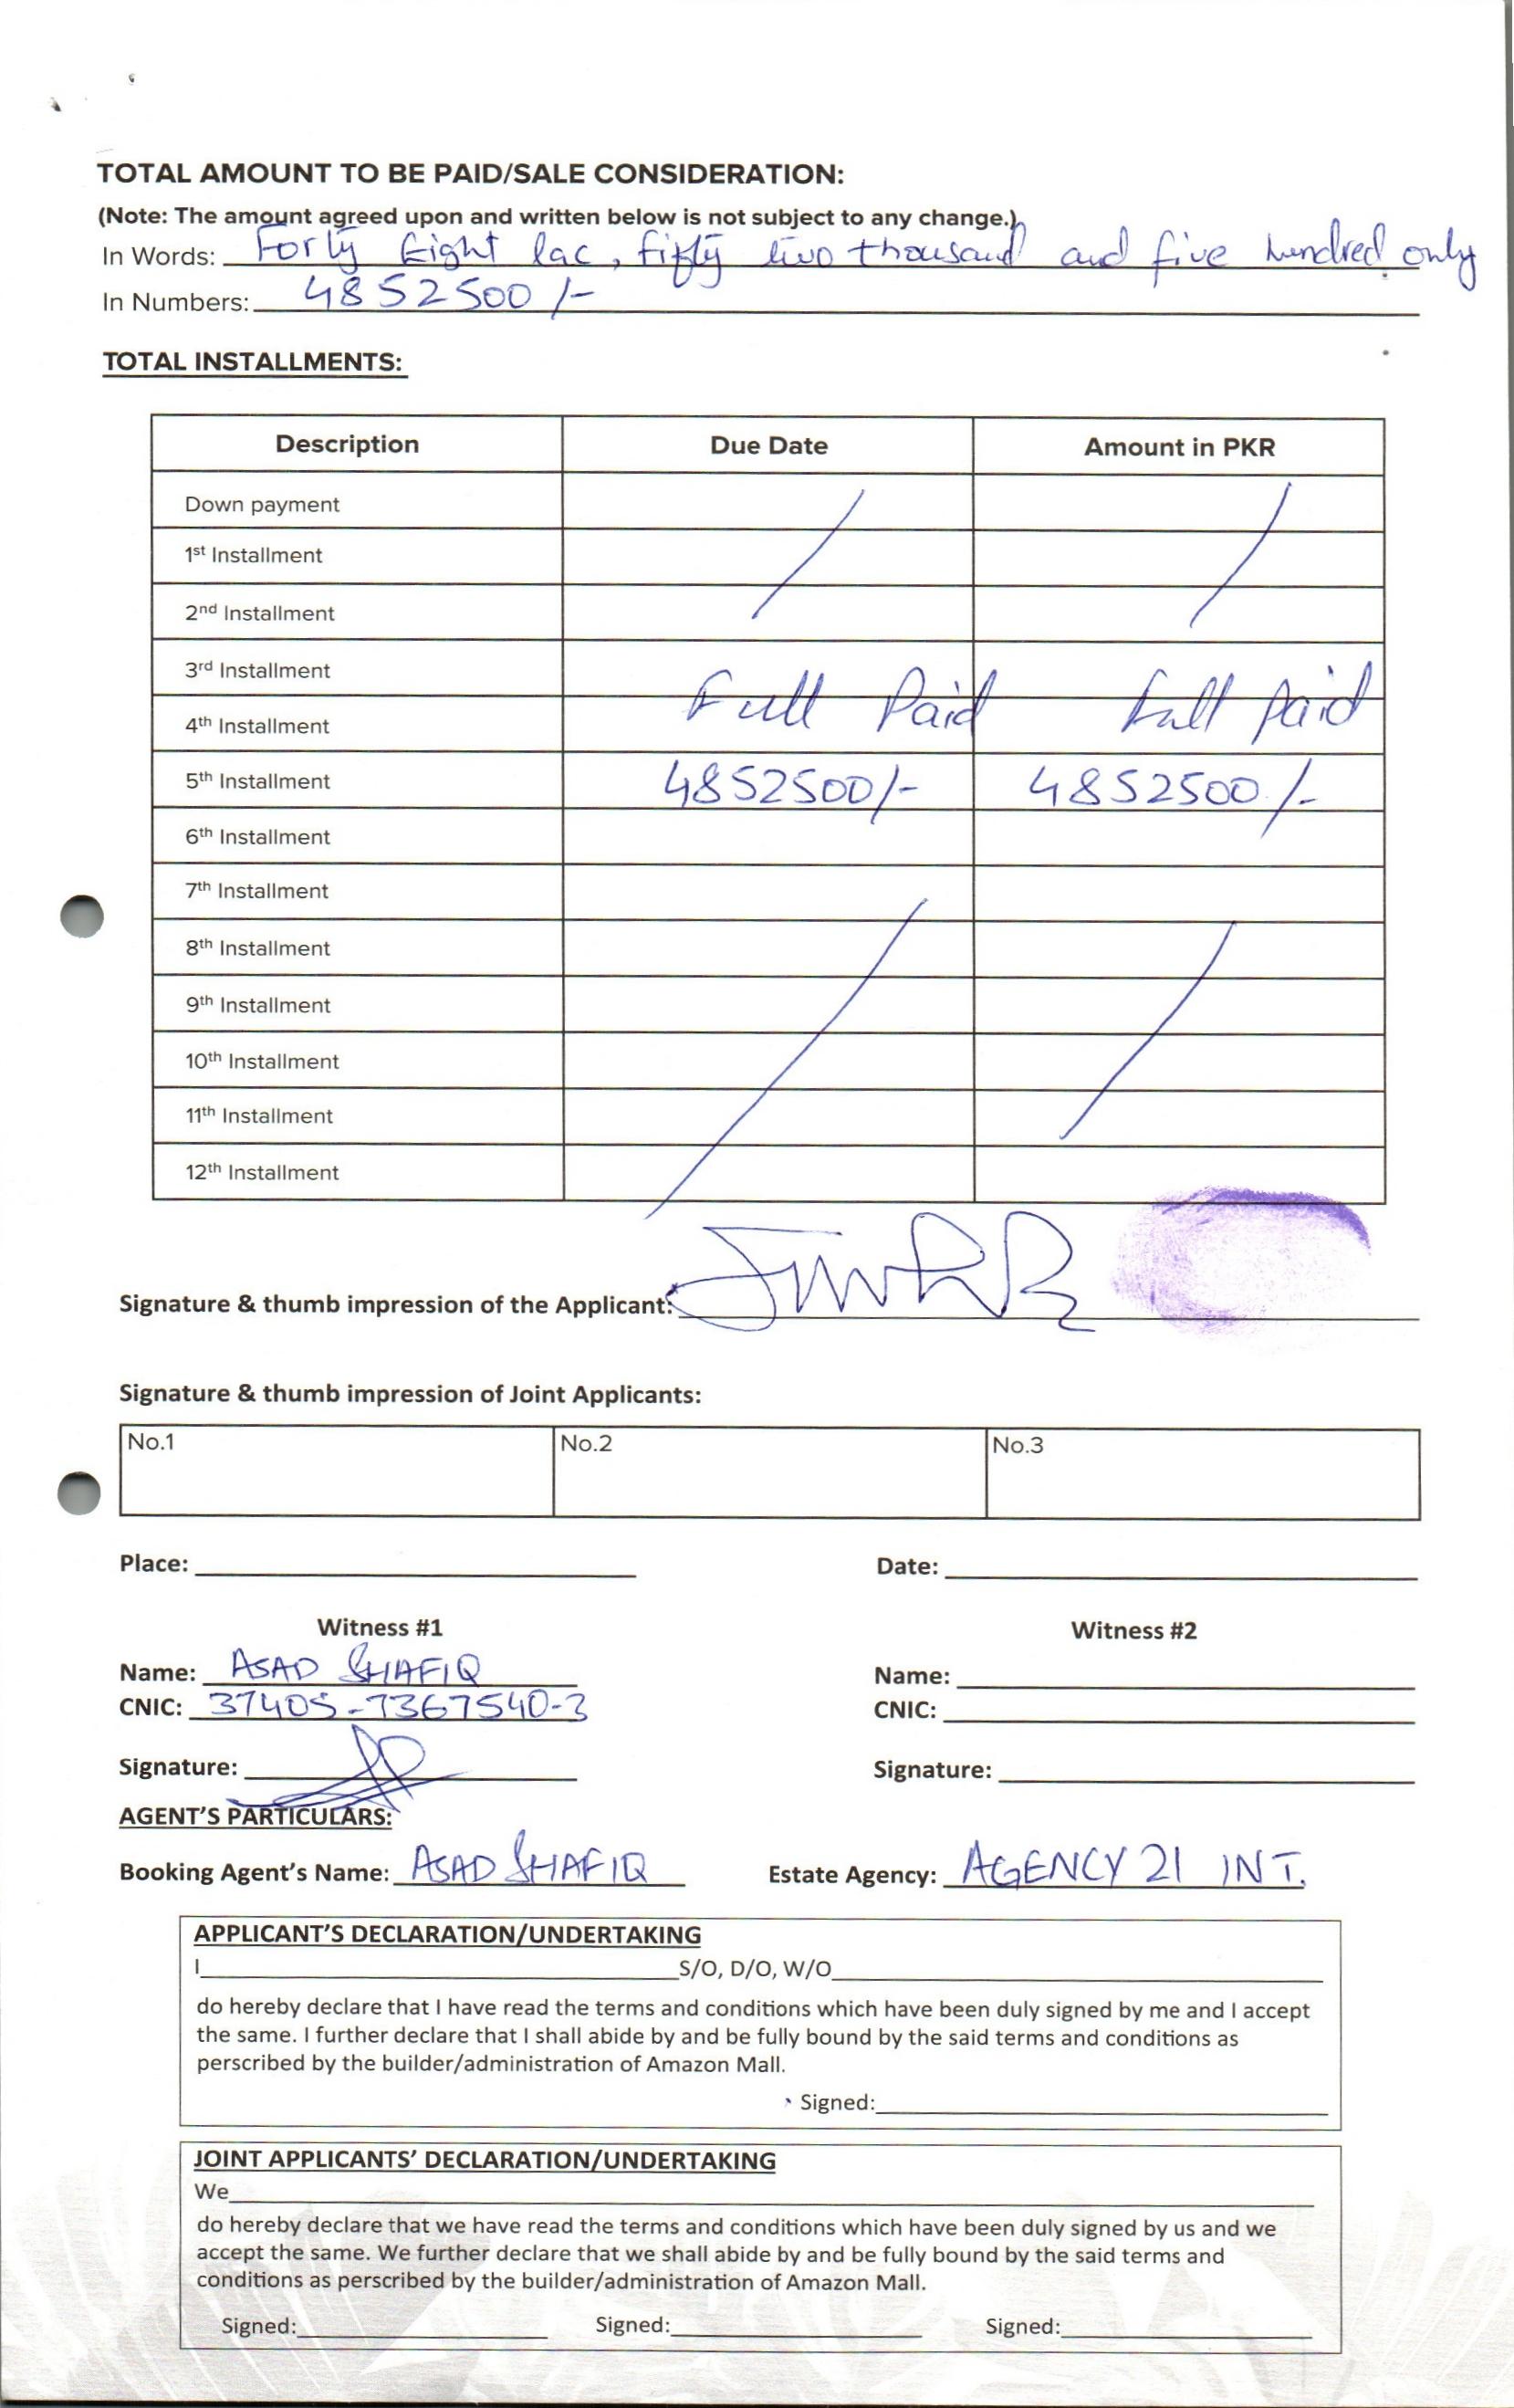 TOTAL AMOUNT TO BE PAID/SALE CONSIDERATION:
(Note: The amount agreed upon and written below is not subject to any change.)
In Words: Forty Eight lac, fifty two thousand and five hundred only
In Numbers: 4852500/-
TOTAL INSTALLMENTS:
Description Due Date Amount in PKR
Down payment
1st Installment
2nd Installment
3rd Installment
Full Paid Full Paid
4th Installment
5th Installment 4852500/- 4852500/-
6th Installment
7th Installment
8th Installment
9th Installment
10th Installment
11th Installment
12th Installment
Signature & thumb impression of the Applicant:
Signature & thumb impression of Joint Applicants:
No.1 No.2 No.3
Place: Date:
Witness #1 Witness #2
Name: ASAD SHAFIQ Name:
CNIC: 37405-7367540-3 CNIC:
Signature: Signature:
AGENT'S PARTICULARS:
Booking Agent's Name: ASAD SHAFIQ Estate Agency: AGENCY 21 INT.
APPLICANT'S DECLARATION/UNDERTAKING
I S/O, D/O, W/O
do hereby declare that I have read the terms and conditions which have been duly signed by me and I accept
the same. I further declare that I shall abide by and be fully bound by the said terms and conditions as
perscribed by the builder/administration of Amazon Mall.
Signed:
JOINT APPLICANTS' DECLARATION/UNDERTAKING
We
do hereby declare that we have read the terms and conditions which have been duly signed by us and we
accept the same. We further declare that we shall abide by and be fully bound by the said terms and
conditions as perscribed by the builder/administration of Amazon Mall.
Signed: Signed: Signed: